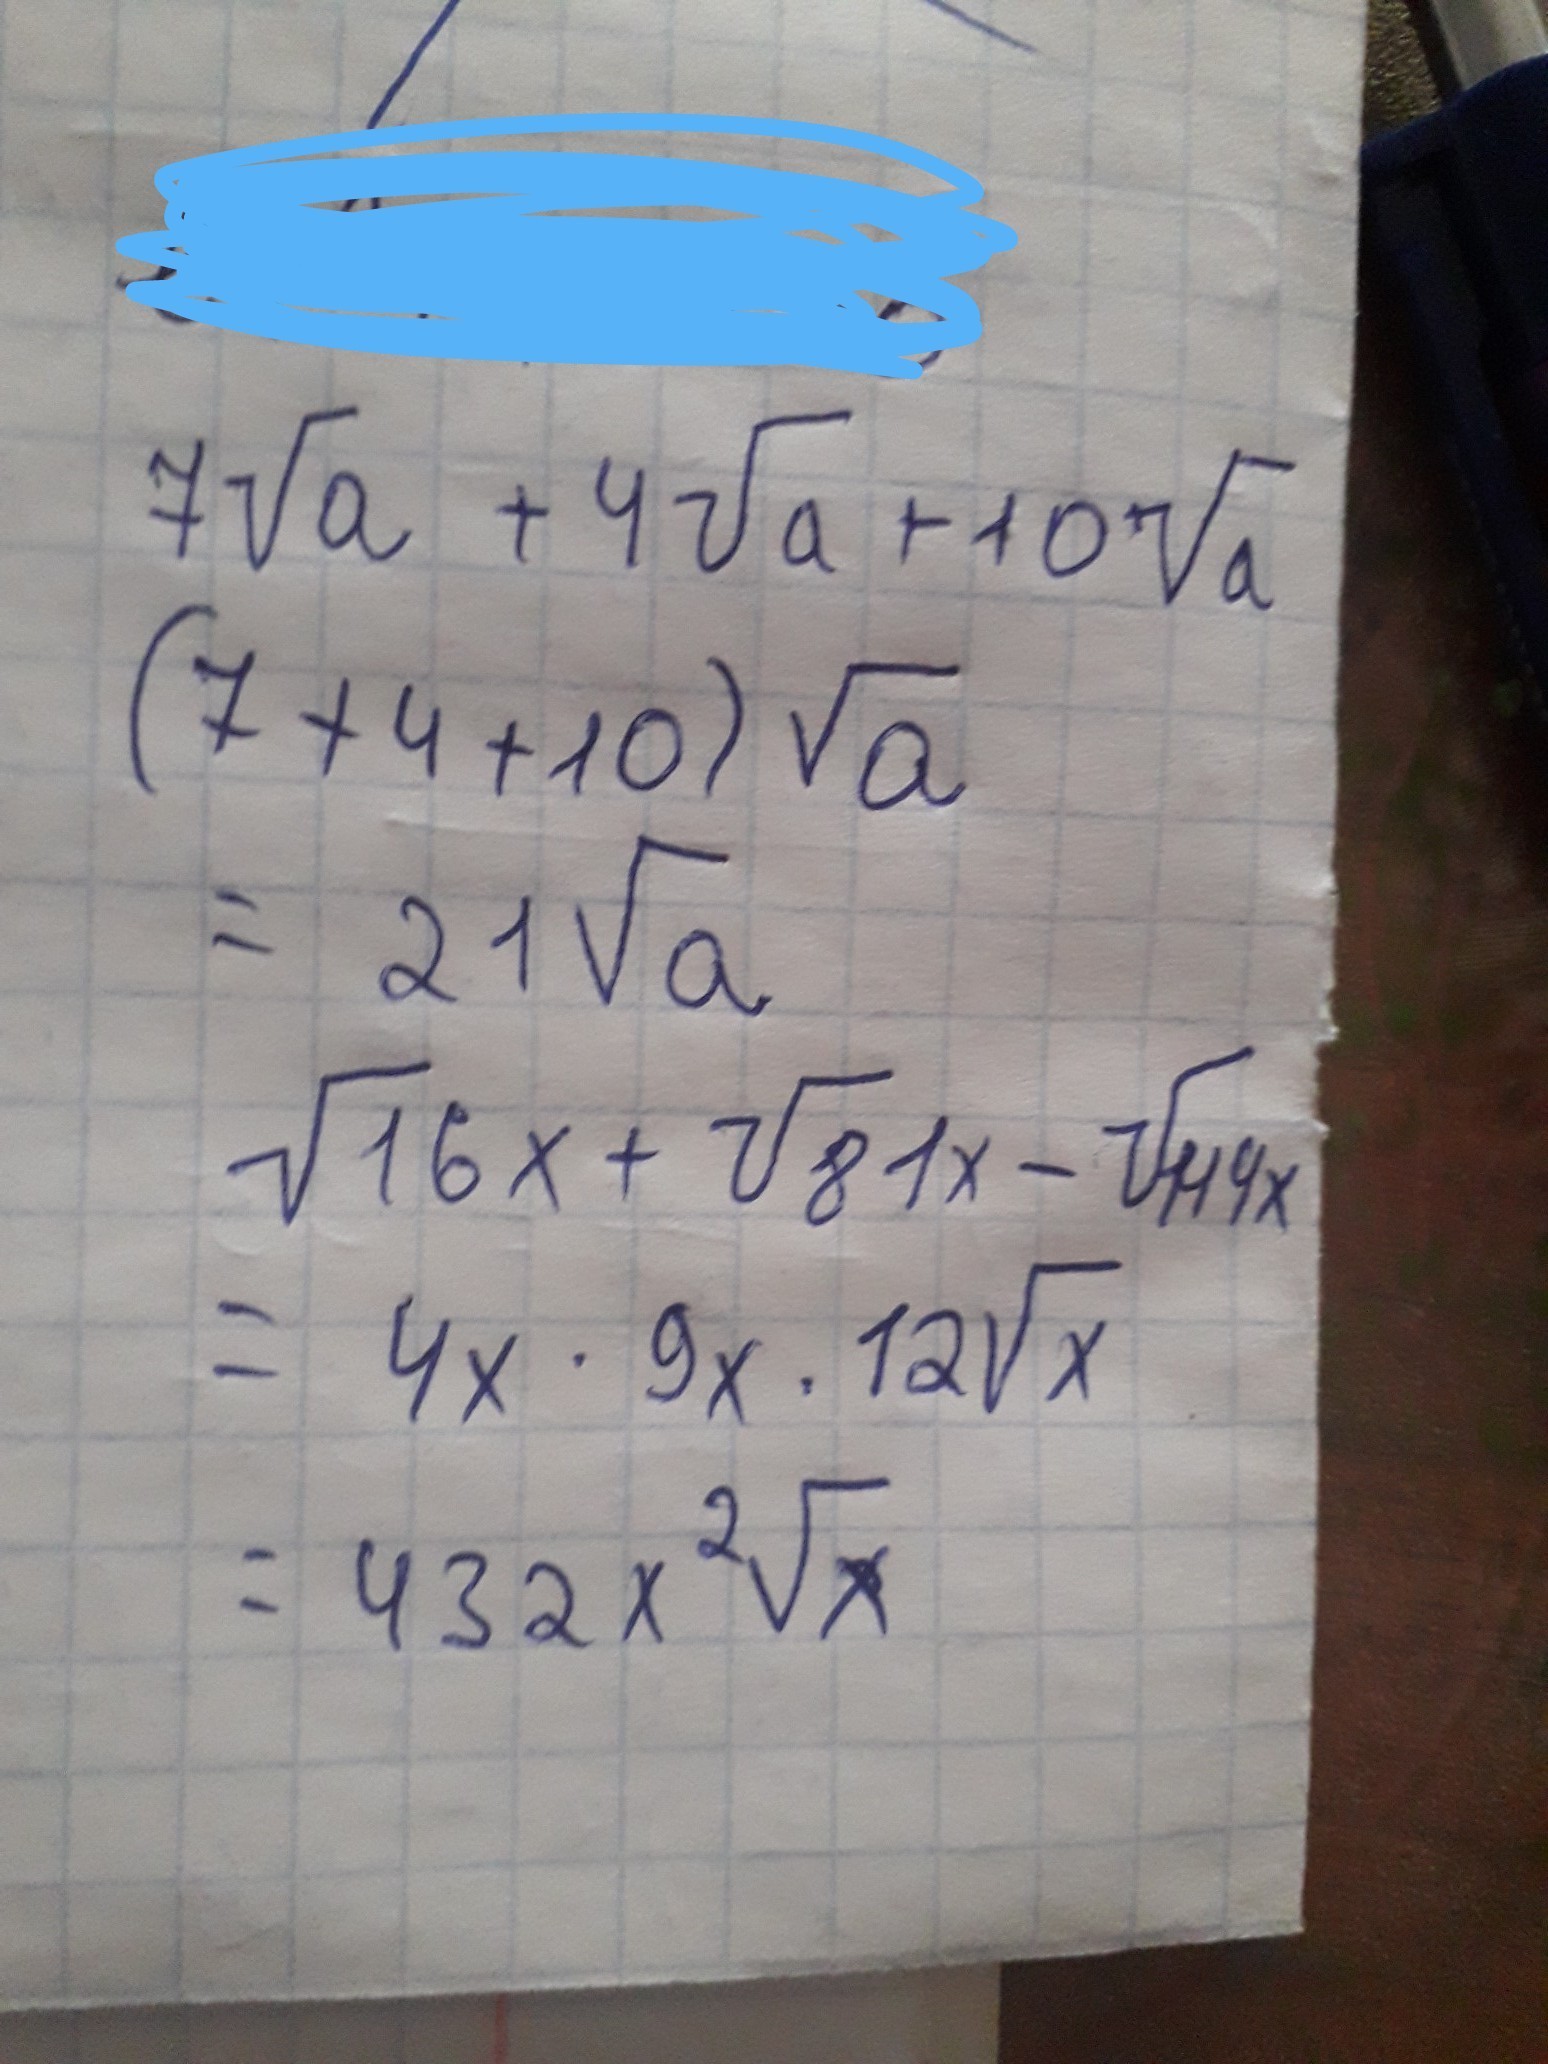 7√a + 4√a + 10√a
(7 + 4 + 10) √a
= 21√a
√16x + √81x - √144x
= 4x · 9x · 12√x
= 432x²√x